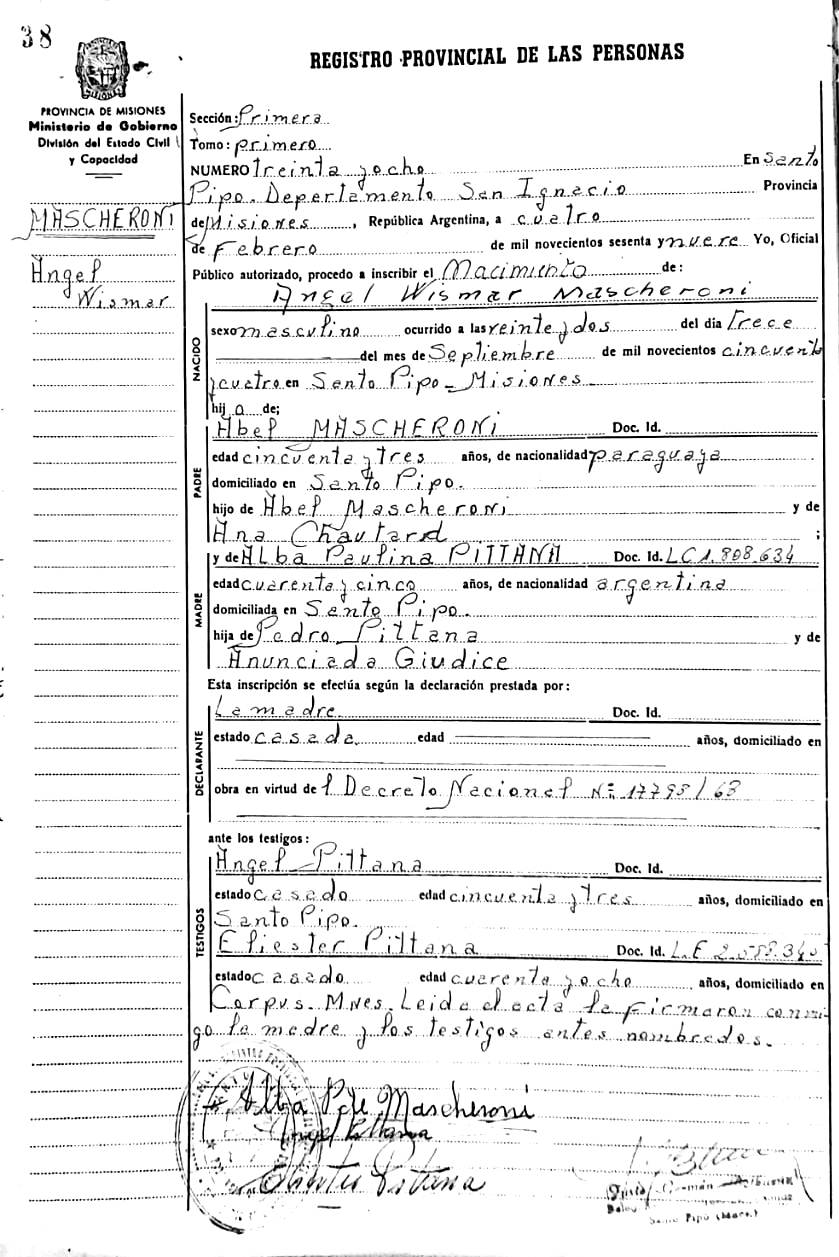 38
REGISTRO PROVINCIAL DE LAS PERSONAS
PROVINCIA DE MISIONES
Ministerio de Gobierno
División del Estado Civil
y Capacidad
MASCHERONI
Angel
Wismar
Sección: Primera
Tomo: primero
NUMERO treinta y ocho En Santo
Pipo. Departamento San Ignacio Provincia
de Misiones, República Argentina, a cuatro
de Febrero de mil novecientos sesenta y nueve Yo, Oficial
Público autorizado, procedo a inscribir el Nacimiento de:
NACIDO
Angel Wismar Mascheroni
sexo masculino ocurrido a las veinte y dos del dia trece
del mes de Septiembre de mil novecientos cincuenta
y cuatro en Santo Pipo - Misiones
hij o de;
PADRE
Abel MASCHERONI Doc. Id.
edad cincuenta y tres años, de nacionalidad paraguaya
domiciliado en Santo Pipo.
hijo de Abel Mascheroni y de
Ana Chautard ;
MADRE
y de ALba Paulina PITTANA Doc. Id. LC 1.808.634
edad cuarenta y cinco años, de nacionalidad argentina
domiciliada en Santo Pipo.
hija de Pedro Pittana y de
Anunciada Giudice
Esta inscripción se efectúa según la declaración prestada por:
DECLARANTE
La madre Doc. Id.
estado casada edad años, domiciliado en
obra en virtud de l Decreto Nacional Nº 17795/68
ante los testigos:
TESTIGOS
Angel Pittana Doc. Id.
estado casado edad cincuenta y tres años, domiciliado en
Santo Pipo.
Eliester Pittana Doc. Id. L.E 2.588.340
estado casado edad cuarenta y ocho años, domiciliado en
Corpus. Mnes. Leida el acta la firmaron conmi-
go la madre y los testigos antes nombrados.
Alba P. de Mascheroni
Angel Pittana
Pittana
Santo Pipo (Mnes.)